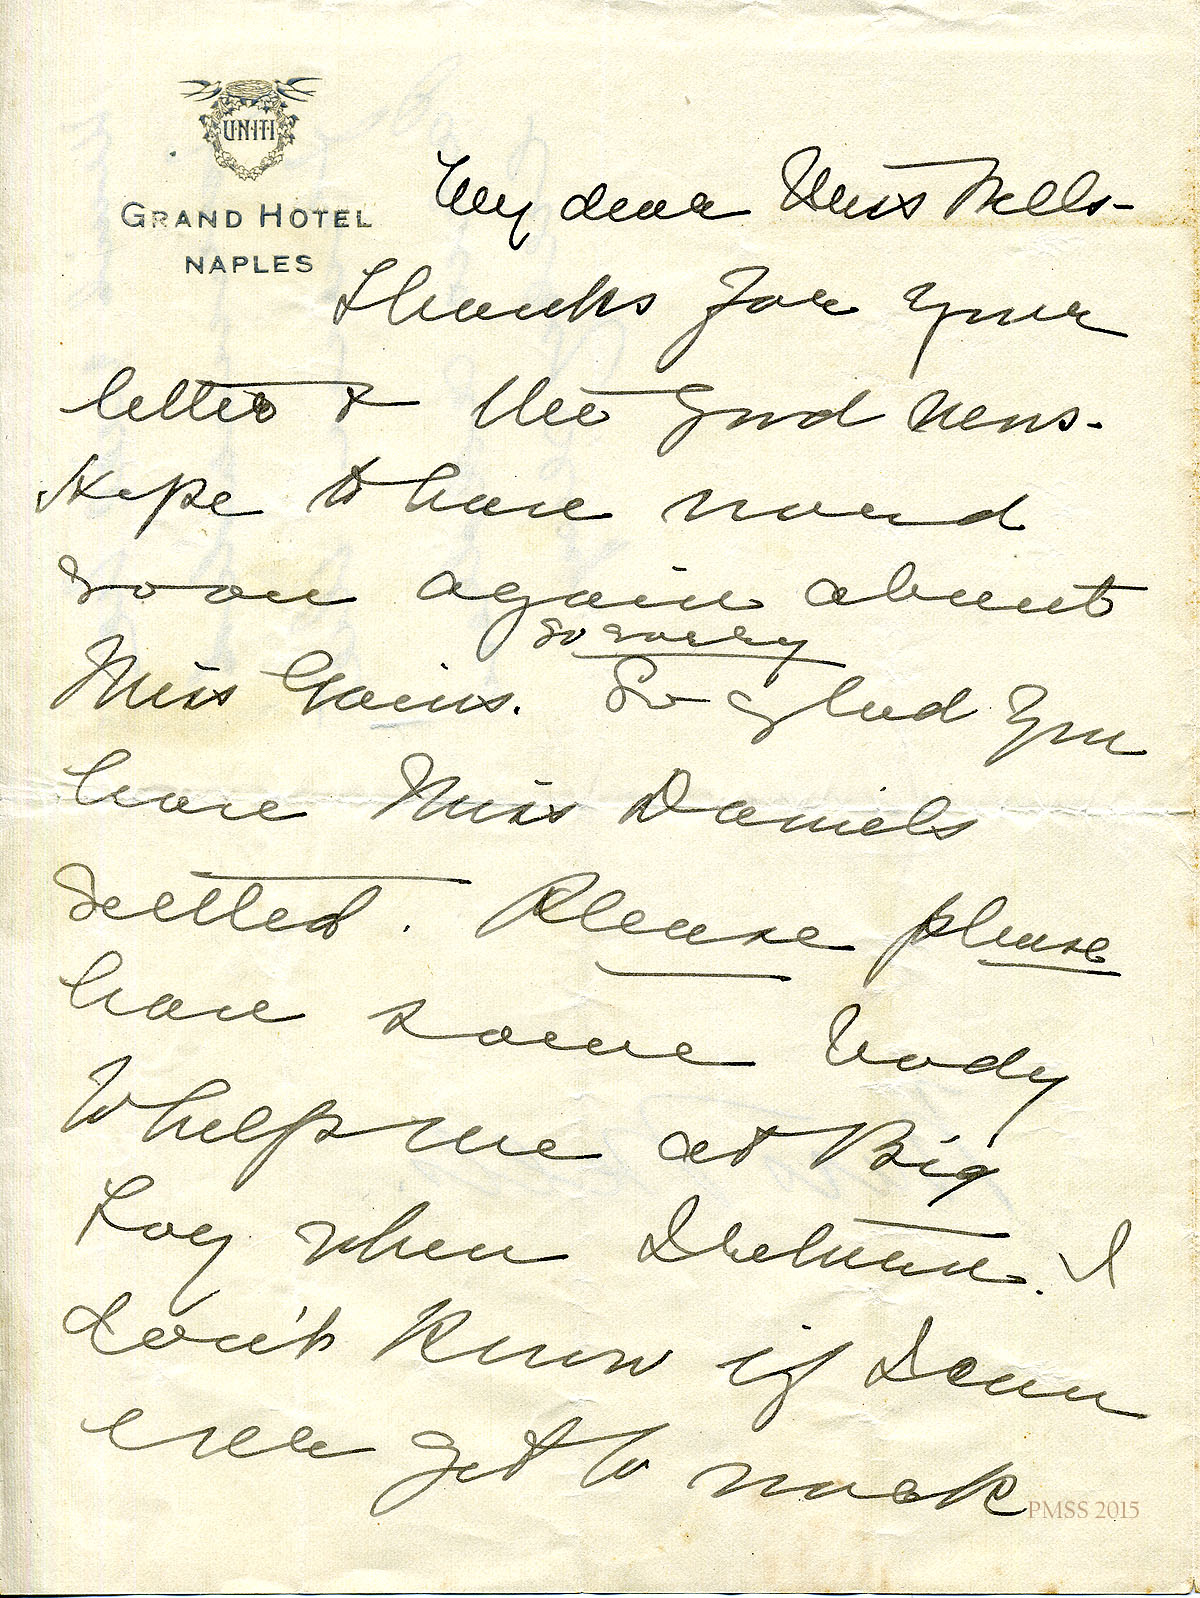 UNITI
GRAND HOTEL
NAPLES
My dear Miss Wells-
Thanks for your
letter & the good news.
Hope to have word
soon again about
so sorry
Miss Gains. So glad you
have Miss Daniels
settled. Please please
have some body
to help me at Big
Log when I return. I
don't know if I can
ever get to work
PMSS 2015